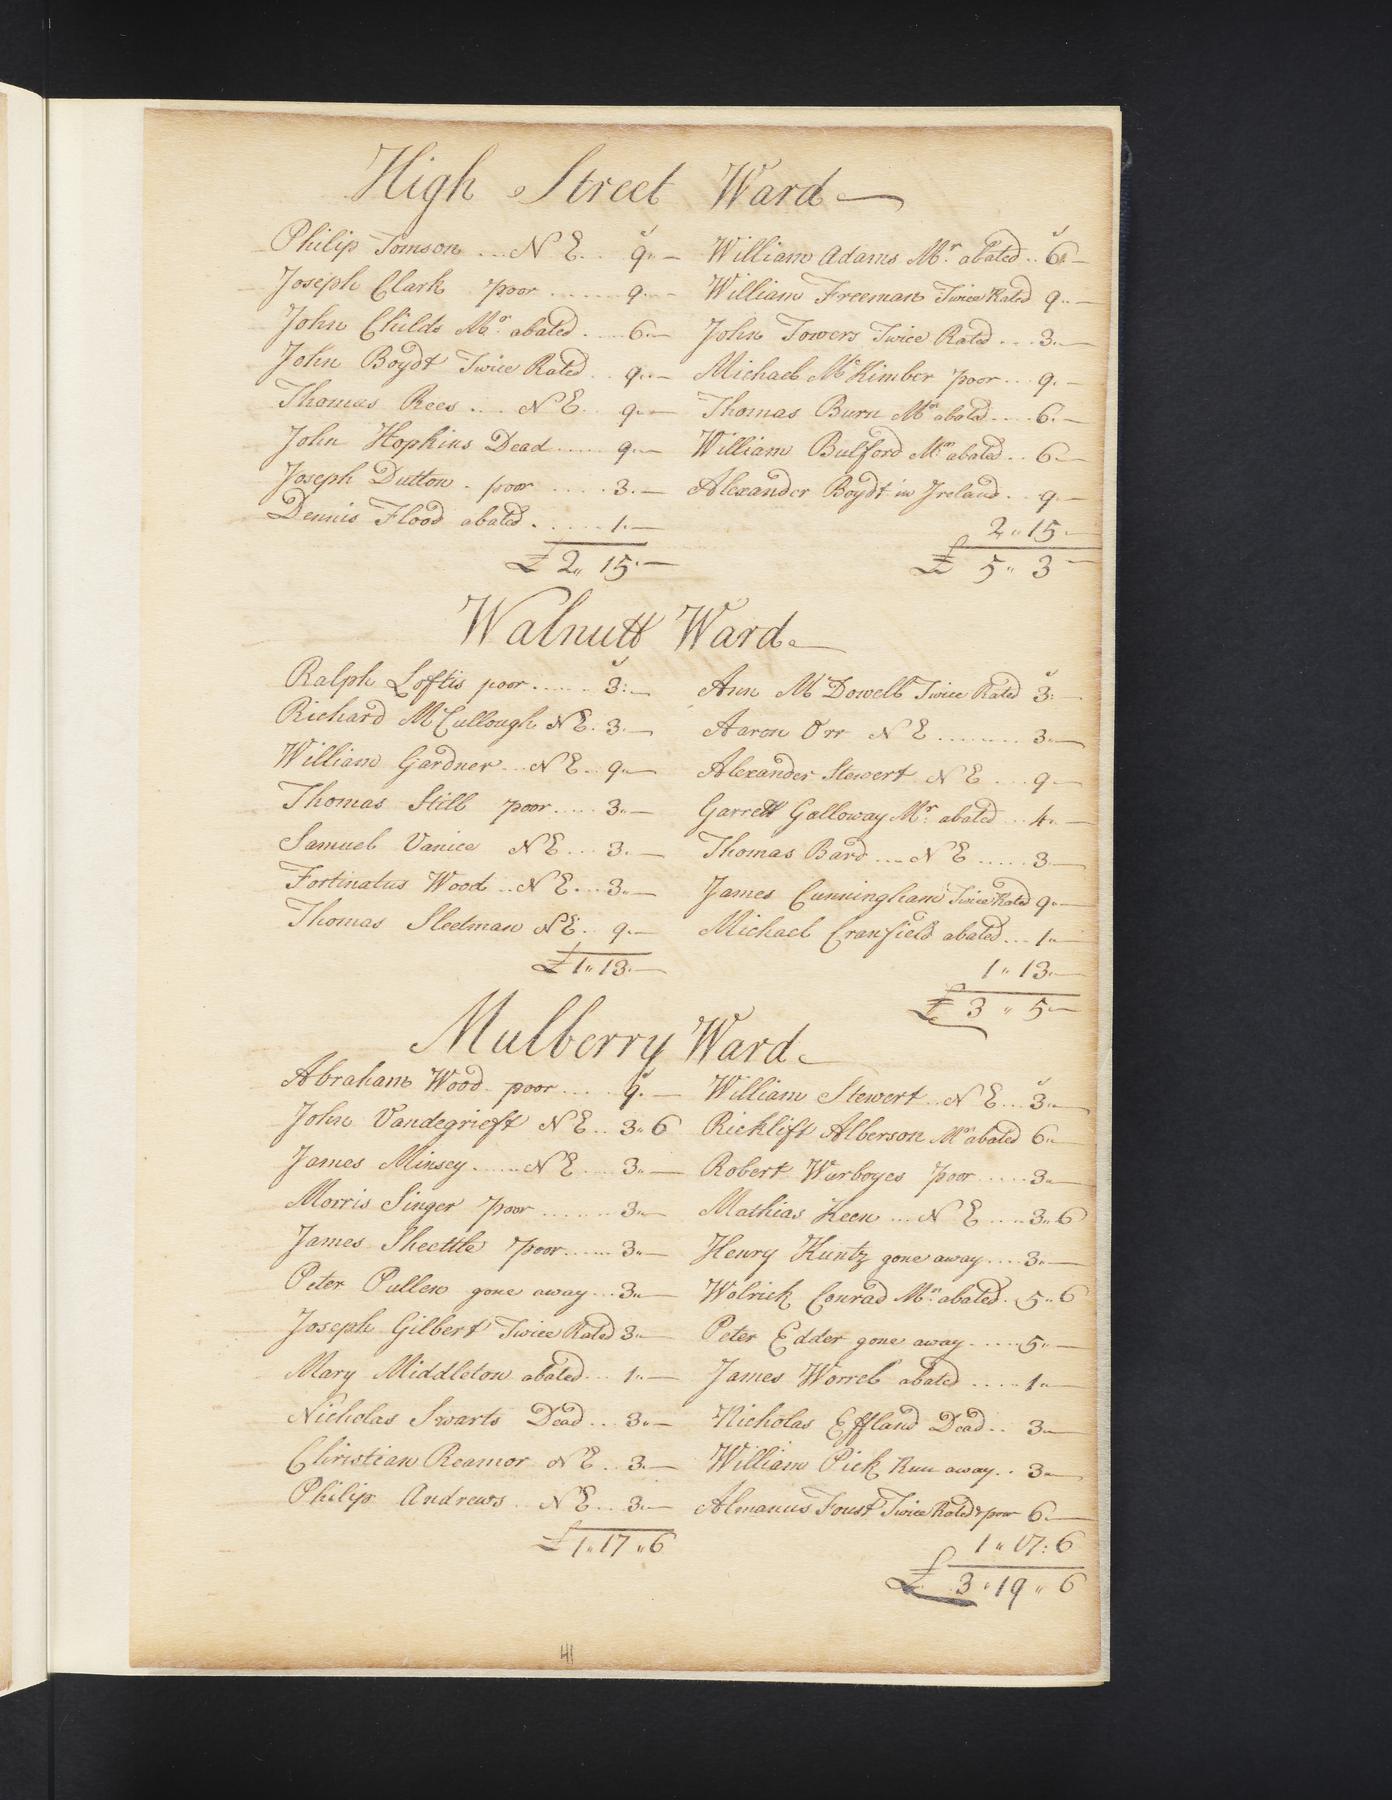 High Street Ward
s
Philip Tomson ... N E .. 9 " —
Joseph Clark poor ...... 9 " —
John Childs Mr. abated .... 6 " —
John Boydt Twice Rated .. 9 " —
Thomas Rees .... N E .. 9 " —
John Hopkins Dead ...... 9 " —
Joseph Dutton . poor ..... 3 " —
Dennis Flood abated ...... 1 " —
£ 2 " 15 " —
s
William Adams Mr. abated .. 6 " —
William Freeman Twice Rated 9 " —
John Towers Twice Rated ... 3 " —
Michael McKimber poor ... 9 " —
Thomas Burn Mr. abated .... 6 " —
William Bulford Mr. abated .. 6 " —
Alexander Boydt in Ireland .. 9 " —
2 " 15 " —
£ 5 " 3 " —
Walnutt Ward
s
Ralph Loftis poor ...... 3 : —
Richard McCullough N E . 3 " —
William Gardner ... N E .. 9 " —
Thomas Still poor ..... 3 " —
Samuel Vanice N E ... 3 " —
Fortinatus Wood .. N E ... 3 " —
Thomas Sleetman N E .. 9 " —
£ 1 " 13 " —
s
Ann McDowell Twice Rated 3 : —
Aaron Orr N E ........ 3 " —
Alexander Stewert N E ... 9 " —
Garrett Galloway Mr. abated ... 4 " —
Thomas Bard .... N E ..... 3 " —
James Cunningham Twice Rated 9 " —
Michael Cranfield abated ... 1 " —
1 " 13 " —
£ 3 " 5 " —
Mulberry Ward
s
Abraham Wood . poor ..... 9 " —
John Vandegrieft N E .. 3 " 6
James Minsey ...... N E .... 3 " —
Morris Singer poor ....... 3 " —
James Sheettle poor ...... 3 " —
Peter Pullen gone away ... 3 " —
Joseph Gilbert Twice Rated 3 " —
Mary Middleton abated ... 1 " —
Nicholas Swarts Dead .. 3 " —
Christian Reamor N E .. 3 " —
Philip Andrews .. N E ... 3 " —
£ 1 " 17 " 6
s
William Stewert .. N E ... 3 " —
Ricklift Alberson Mr. abated 6 " —
Robert Warboyes poor ..... 3 " —
Mathias Keen ... N E .... 3 " 6
Henry Kuntz gone away .... 3 " —
Wolrick Conrad Mr. abated . 5 " 6
Peter Edder gone away ..... 5 " —
James Worrel abated ..... 1 " —
Nicholas Effland Dead .. 3 " —
William Pick Run away .. 3 " —
Almanus Foust Twice Rated & poor 6 " —
1 " 17 : 6
£ 3 " 19 " 6
41